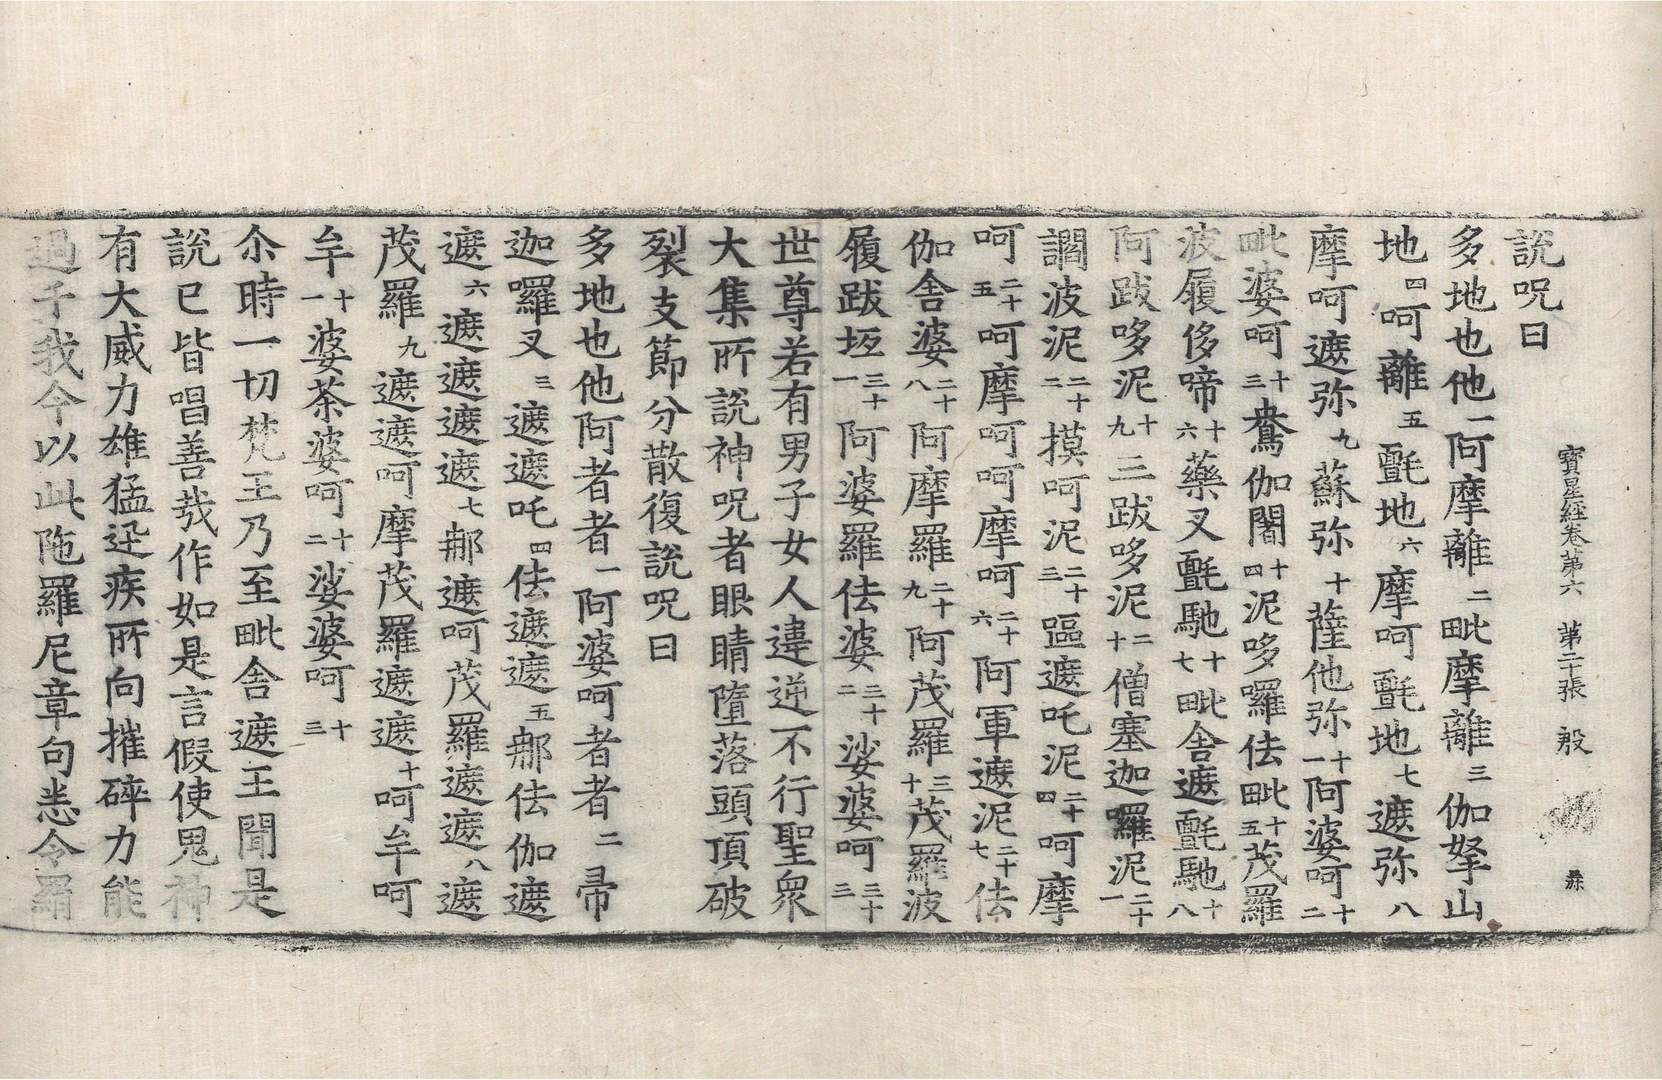 說呪曰
寶星經卷第六 第二十張 殷
多地也他一阿摩離二毗摩離三伽拏山
地四呵離五氎地六摩呵氎地七遮弥八
摩呵遮弥九蘇弥十薩他弥十一阿婆呵十二
毗婆呵十三鴦伽闍十四泥哆囉佉毗十五茂羅
波履侈啼十六藥叉氎馳十七毗舍遮氎馳十八
阿跋哆泥十九三跋哆泥二十僧塞迦囉泥二十一
讇波泥二十二摸呵泥二十三嘔遮吒泥二十四呵摩
呵二十五呵摩呵呵摩呵二十六阿軍遮泥二十七佉
伽舍婆二十八阿摩羅二十九阿茂羅三十茂羅波
履跋坘三十一阿婆羅佉婆三十二娑婆呵三十三
世尊若有男子女人違逆不行聖衆
大集所說神呪者眼睛墮落頭頂破
裂支節分散復說呪曰
多地也他阿者者一阿婆呵者者二帚
迦囉叉三遮遮吒四佉遮遮五那佉伽遮
遮六遮遮遮遮七那遮呵茂羅遮遮八遮
茂羅九遮遮呵摩茂羅遮遮十呵牟呵
牟十一婆荼婆呵十二娑婆呵十三
尒時一切梵王乃至毗舍遮王聞是
說已皆唱善哉作如是言假使鬼神
有大威力雄猛迅疾所向摧碎力能
過千我今以此陁羅尼章句悉令羂